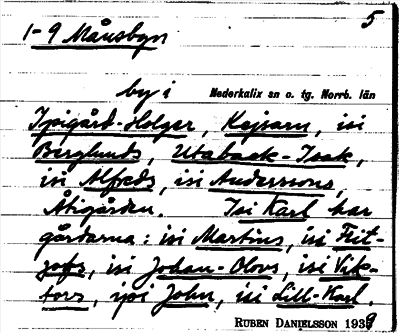 5
1-9 Månsbyn
by i Nederkalix sn o. tg. Norrb. län
Ipigård-Holger, Kejsarn, isi
Berglunds, Utabaak-Isak,
isi Alfreds, isi Anderssons,
Åkigården. Isi Karl har
gårdarna: isi Martins, isi Frit-
jofs, isi Johan-Olovs, isi Vik-
tors, ipi John, isi Lill-Karl.
RUBEN DANIELSSON 1939